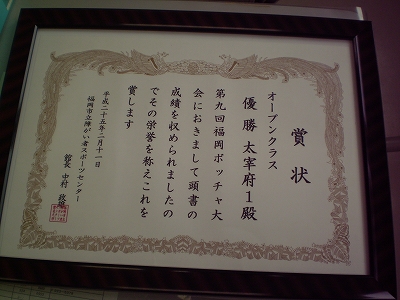 賞状
オープンクラス
優勝 太宰府1殿
第九回福岡ボッチャ大
会におきまして頭書の
成績を収められましたの
でその栄誉を称えこれを
賞します
平成二十五年二月十一日
福岡市立障がい者スポーツセンター
館長 中村